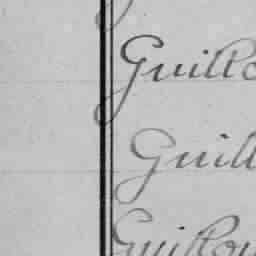 Guillo
Guill
Guillou